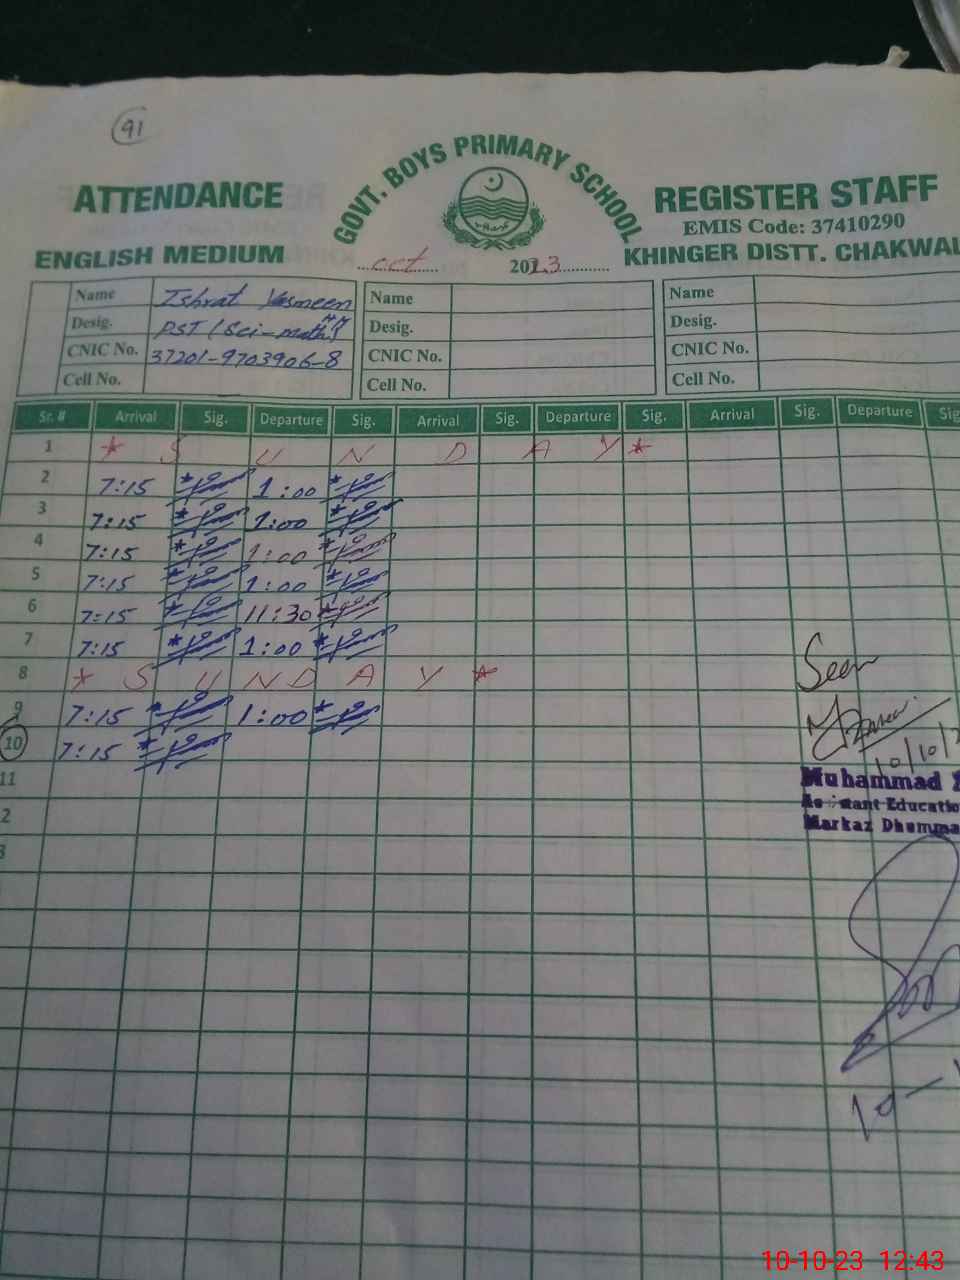 91
GOVT. BOYS PRIMARY SCHOOL
ATTENDANCE REGISTER STAFF
EMIS Code: 37410290
ENGLISH MEDIUM oct 2023 KHINGER DISTT. CHAKWAL
Name Ishrat Yasmeen Name Name
Desig. PST (Sci-math) Desig. Desig.
CNIC No. 37201-9703906-8 CNIC No. CNIC No.
Cell No. Cell No. Cell No.
Sr. # Arrival Sig. Departure Sig. Arrival Sig. Departure Sig. Arrival Sig. Departure Sig
1 * S U N D A Y *
2 7:15 1:00
3 7:15 1:00
4 7:15 1:00
5 7:15 1:00
6 7:15 11:30
7 7:15 1:00
8 * S U N D A Y *
9 7:15 1:00
10 7:15
11
2
3
Seen
10/10/2
Muhammad
Assistant Educatio
Markaz Dhumma
10-
10-10-23 12:43